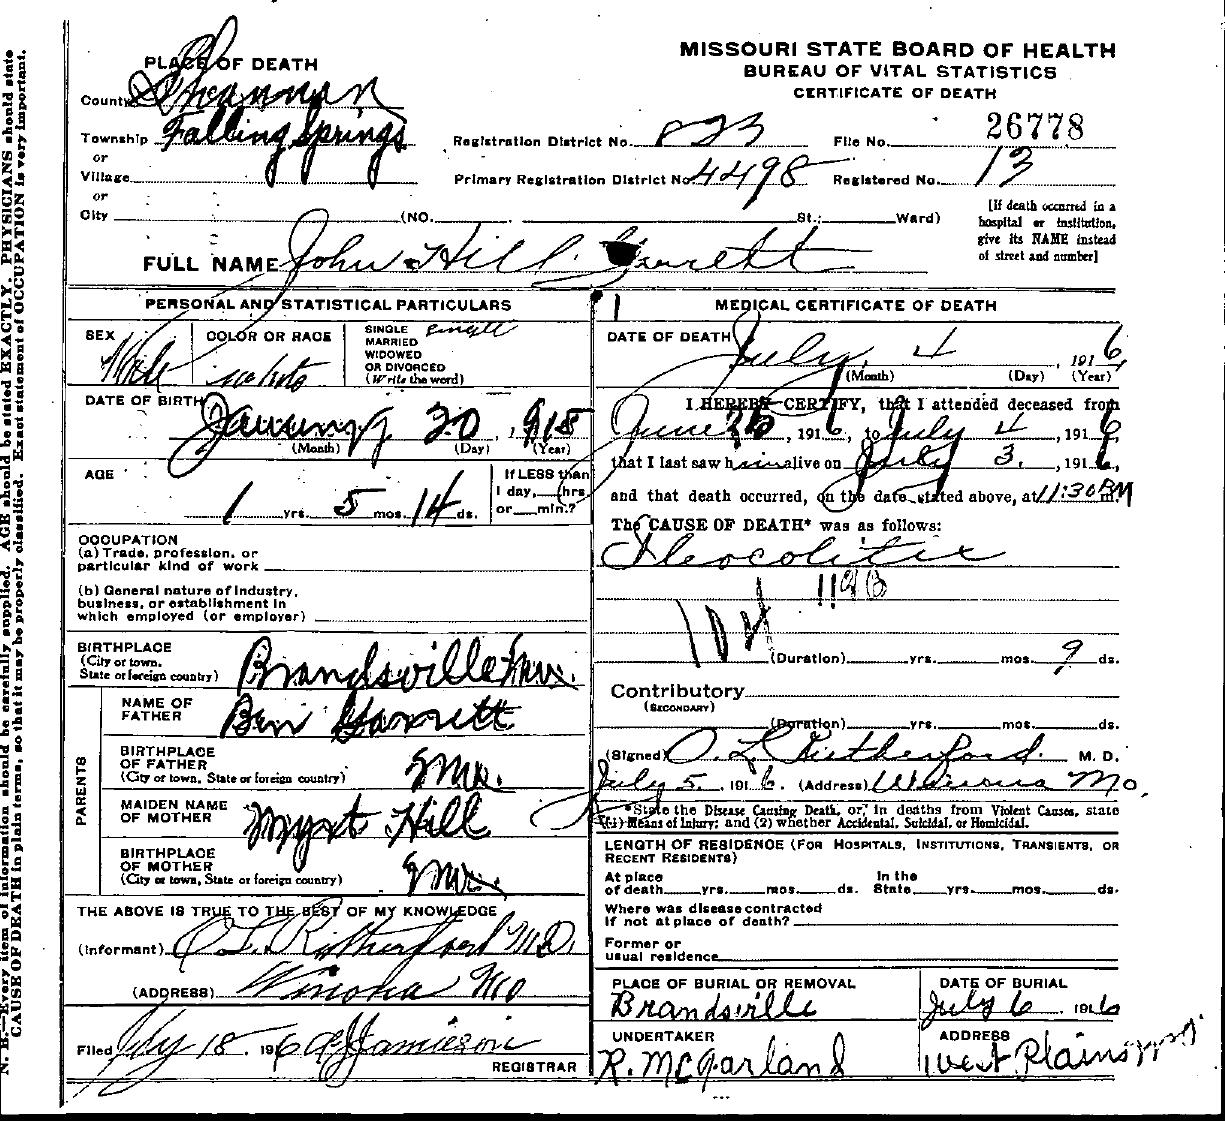 MISSOURI STATE BOARD OF HEALTH
BUREAU OF VITAL STATISTICS
CERTIFICATE OF DEATH
PLACE OF DEATH
County Shannon
Township Falling Springs
or
Village
or
City (NO. St.; Ward)
Registration District No. 823 File No. 26778
Primary Registration District No. 4498 Registered No. 13
[If death occurred in a
hospital or institution,
give its NAME instead
of street and number]
FULL NAME John Hill Garrett
PERSONAL AND STATISTICAL PARTICULARS
SEX Male
COLOR OR RACE white
SINGLE single
MARRIED
WIDOWED
OR DIVORCED
(Write the word)
DATE OF BIRTH
January 20, 1915
(Month) (Day) (Year)
AGE
1 yrs. 5 mos. 14 ds.
If LESS than
1 day, hrs.
or min.?
OCCUPATION
(a) Trade, profession, or
particular kind of work
(b) General nature of industry,
business, or establishment in
which employed (or employer)
BIRTHPLACE
(City or town,
State or foreign country) Brandsville Mo.
PARENTS
NAME OF
FATHER Ben Garrett
BIRTHPLACE
OF FATHER
(City or town, State or foreign country) Mo.
MAIDEN NAME
OF MOTHER Myrt Hill
BIRTHPLACE
OF MOTHER
(City or town, State or foreign country) Mo.
THE ABOVE IS TRUE TO THE BEST OF MY KNOWLEDGE
(Informant) O L Rutherford MD.
(ADDRESS) Winona Mo
Filed July 18. 1916 Jamieson
REGISTRAR
MEDICAL CERTIFICATE OF DEATH
DATE OF DEATH July 4 1916
(Month) (Day) (Year)
I HEREBY CERTIFY, that I attended deceased from
June 26, 1916, to July 4, 1916,
that I last saw him alive on July 3., 1916,
and that death occurred, on the date stated above, at 11:30 PM m.
The CAUSE OF DEATH* was as follows:
Ileocolitis
119B
104
(Duration) yrs. mos. 9 ds.
Contributory
(SECONDARY)
(Duration) yrs. mos. ds.
(Signed) O. L. Rutherford. M. D.
July 5. 1916. (Address) Winona Mo.
*State the Disease Causing Death, or, in deaths from Violent Causes, state
(1) Means of Injury; and (2) whether Accidental, Suicidal, or Homicidal.
LENGTH OF RESIDENCE (FOR HOSPITALS, INSTITUTIONS, TRANSIENTS, OR
RECENT RESIDENTS)
At place In the
of death yrs. mos. ds. State yrs. mos. ds.
Where was disease contracted
If not at place of death?
Former or
usual residence
PLACE OF BURIAL OR REMOVAL
Brandsville
DATE OF BURIAL
July 6 1916
UNDERTAKER
R. McFarland
ADDRESS
West Plains
N. B.—Every item of information should be carefully supplied. AGE should be stated EXACTLY. PHYSICIANS should state
CAUSE OF DEATH in plain terms, so that it may be properly classified. Exact statement of OCCUPATION is very important.